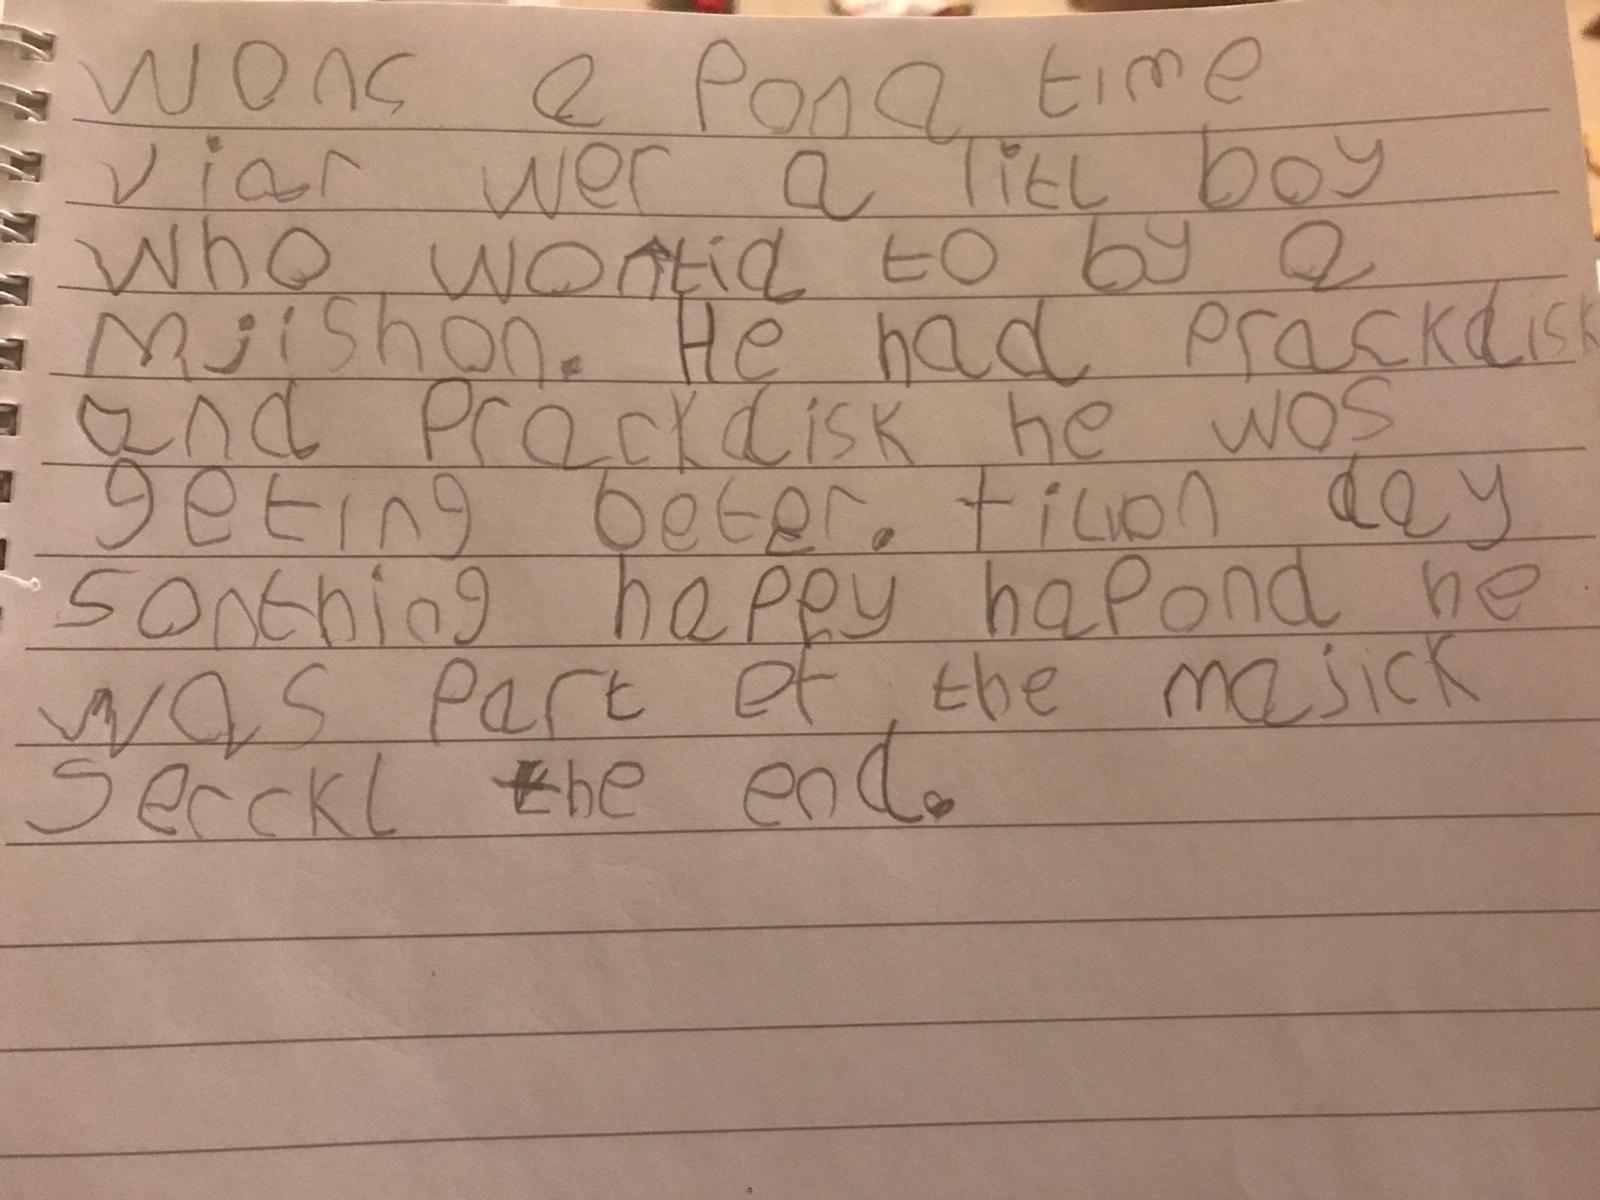 wons a pona time
viar wer a litl boy
who wontid to by a
mjishon. He had prackdisk
and prackdisk he wos
geting beter. tilwon day
sonthing happy hapond he
was part of the majick
serckl the end.